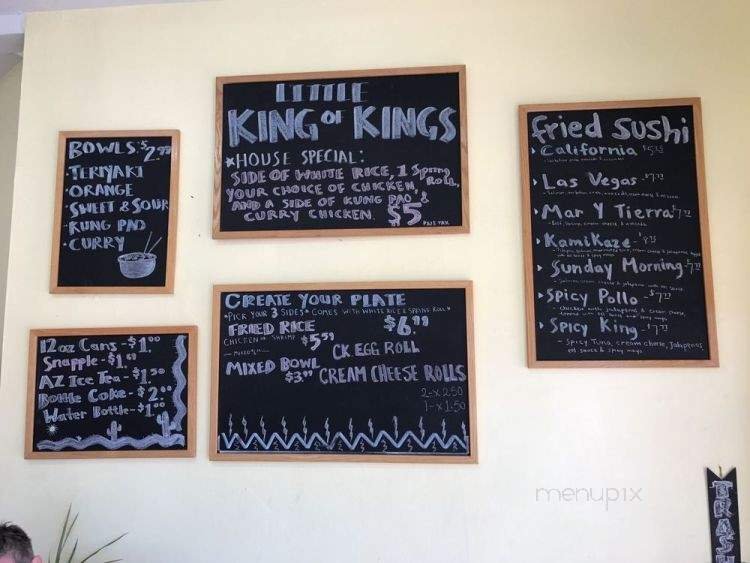 BOWLS: $2.99
• TERIYAKI
• ORANGE
• SWEET & SOUR
• KUNG PAO
• CURRY
LITTLE
KING OF KINGS
*HOUSE SPECIAL:
SIDE OF WHITE RICE, 1 Spring Roll,
YOUR CHOICE OF CHICKEN,
AND A SIDE OF KUNG PAO &
CURRY CHICKEN. $5
PLUS TAX
fried sushi
California
Las Vegas - $7
Mar Y Tierra $7
Kamikaze - $8
Sunday Morning - $7
Spicy Pollo - $7
Chicken with jalapeños & cream cheese,
Spicy King - $7
- Spicy Tuna, cream cheese, jalapeños
eel sauce & spicy mayo
12 oz Cans - $1.00
Snapple - $1.
AZ Ice Tea - $1.
Bottle Coke - $2.
Water Bottle - $1.00
CREATE YOUR PLATE
*PICK YOUR 3 SIDES* COMES WITH WHITE RICE & SPRING ROLL*
$6.99
FRIED RICE
CHICKEN OR SHRIMP $5.59
— MIXED —
CK EGG ROLL
MIXED BOWL
$3.99 CREAM CHEESE ROLLS
2-x 2.50
1-x 1.50
TRASH
menupix